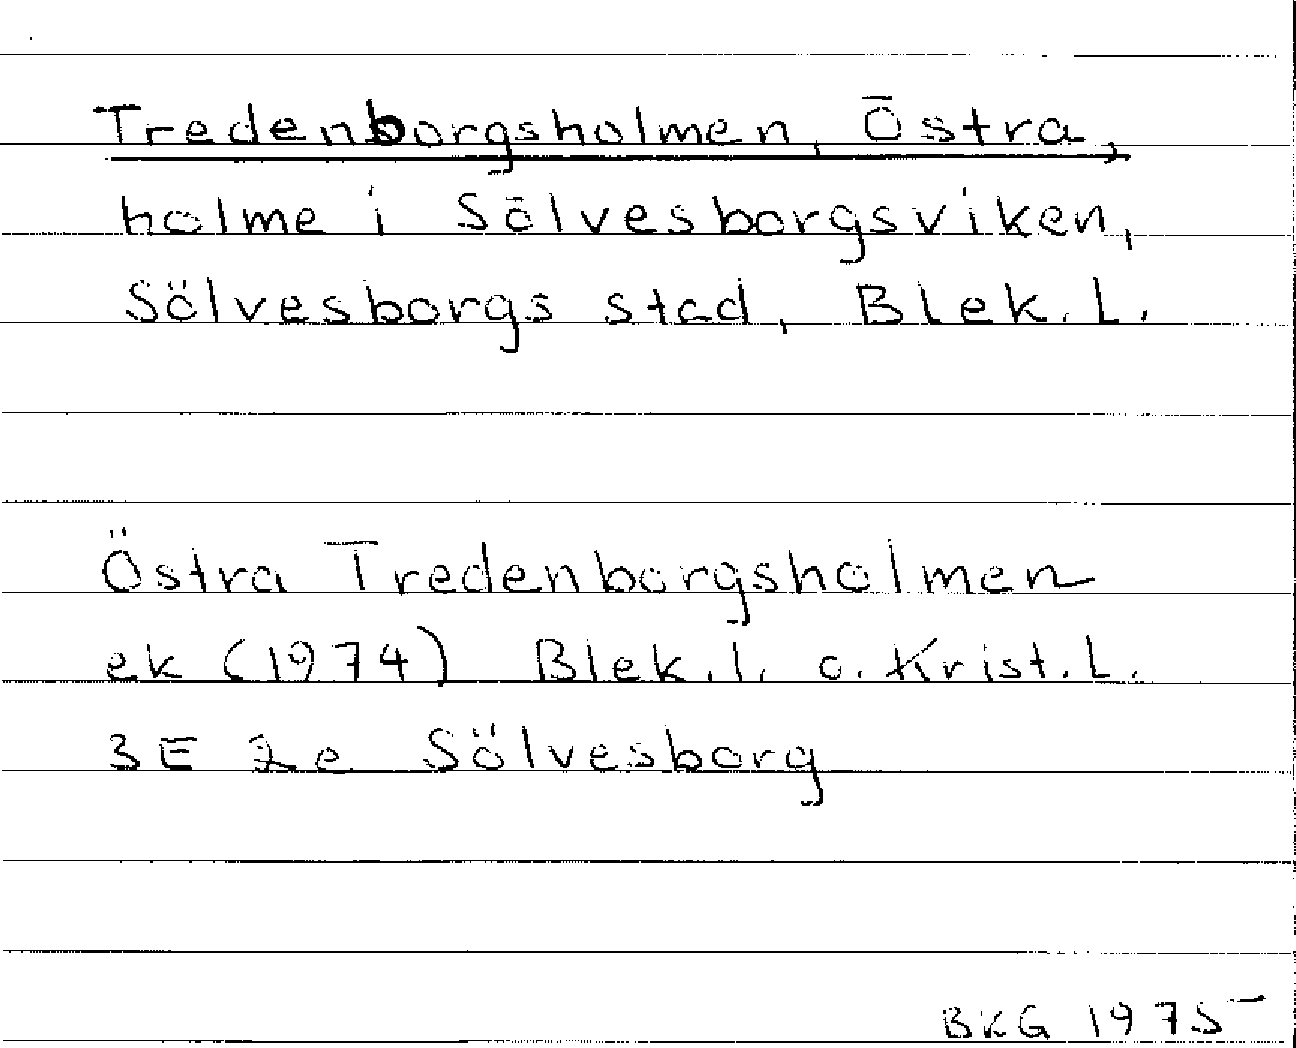 Tredenborgsholmen, Östra,
holme i Sölvesborgsviken,
Sölvesborgs stad, Blek. L.
Östra Tredenborgsholmen
ek (1974) Blek. l. o. Krist. L.
3E 2e Sölvesborg
BKG 1975